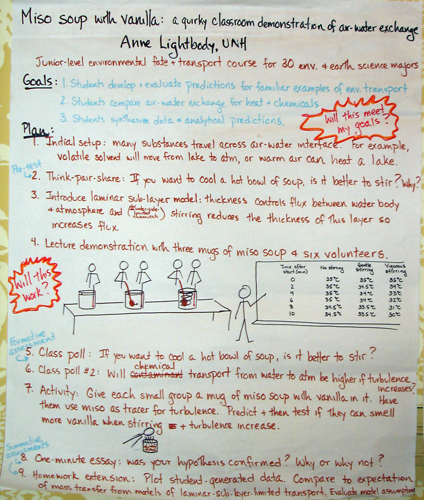 Miso soup with vanilla: a quirky classroom demonstration of air-water exchange
Anne Lightbody, UNH
Junior-level environmental fate & transport course for 30 env. & earth science majors
Goals: 1. Students develop & evaluate predictions for familiar examples of env. transport
2. Students compare air-water exchange for heat & chemicals
3. Students synthesize data & analytical predictions.
Will this meet
my goals?
Plan:
1. Initial setup: many substances travel across air-water interface. For example,
volatile solved will move from lake to atm, or warm air can heat a lake.
Pre-test
2. Think-pair-share: If you want to cool a hot bowl of soup, is it better to stir? Why?
3. Introduce laminar sub-layer model: thickness controls flux between water body
& atmosphere and stirring reduces the thickness of this layer so
increases flux
4. Lecture demonstration with three mugs of miso soup & six volunteers.
Will this
work?
Time after start (min) No stirring Gentle stirring Vigorous stirring
0 35°C 35°C 35°C
2 35°C
4 35°C
6 35°C
8
10
Formative assessment
5. Class poll: If you want to cool a hot bowl of soup, is it better to stir?
6. Class poll #2: Will contaminant chemical transport from water to atm be higher if turbulence increases?
7. Activity: Give each small group a mug of miso soup with vanilla in it. Have
them use miso as tracer for turbulence. Predict & then test if they can smell
more vanilla when stirring = turbulence increase.
Summative assessments
8. One-minute essay: was your hypothesis confirmed? Why or why not?
9. Homework extension: Plot student-generated data. Compare to expectation
of mass transfer from models of laminar-sub-layer-limited transport. Evaluate model assumptions